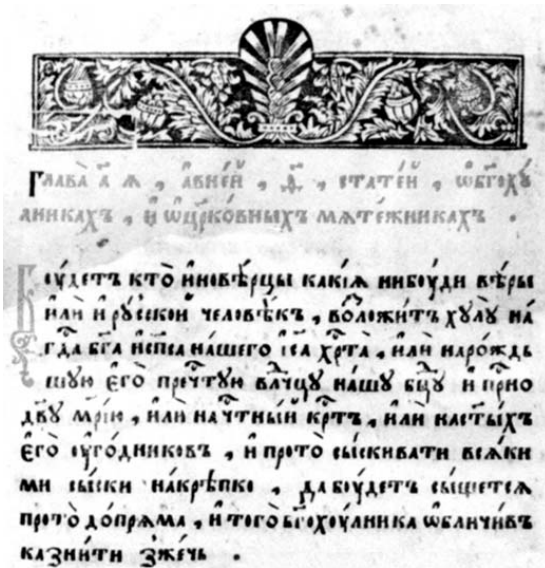 Глава̀ а҃ ꙗ , а҆вне́й , д҃ , стате́й , ѡ҆бг҃охꙋ́
лникахъ , и҆ ѡ҆цр҃ко́вныхъ мѧте́жникахъ .
Бꙋ́детъ кто̀ и҆нове́рцы какі́ѧ нибоуди вѣ́ры
и҆лѝ и҆ рꙋ́сскои человѣ́къ , воꙁложи́тъ хꙋлꙋ̀ на́
гд҃а бг҃а и҆сп҃са на́шего і҆с҃а хрⷭ҇та̀ , и҆лѝ наро́ждь
шꙋю є҆го̀ преч҇тꙋю влⷣчцꙋ на́шꙋ бцⷣꙋ и҆ при҇но
дв҃ꙋ мр҃і́ю , и҆лѝ на чⷭ҇тныи кр҇тъ , и҆лѝ на ст҃ы́хъ
є҆го̀ оуго́дниковъ , и҆ прото̀ сы́скивати всѧ́ки
ми сы́ски на́крѣпко , да боудетъ сы́щетсѧ
прото̀ до́прѧма , и҆ того̀ бг҃охоу́лника ѡ҆бличи́въ
каꙁни́ти ꙁже́чь .